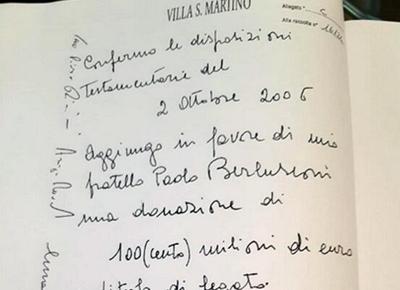 VILLA S. MARTINO
Allegato " C
Alla raccolta n°
Confermo le disposizioni
Testamentarie del
2 Ottobre 2006
Aggiungo in favore di mio
fratello Paolo Berlusconi
una donazione di
100 (cento) milioni di euro
titolo di legato